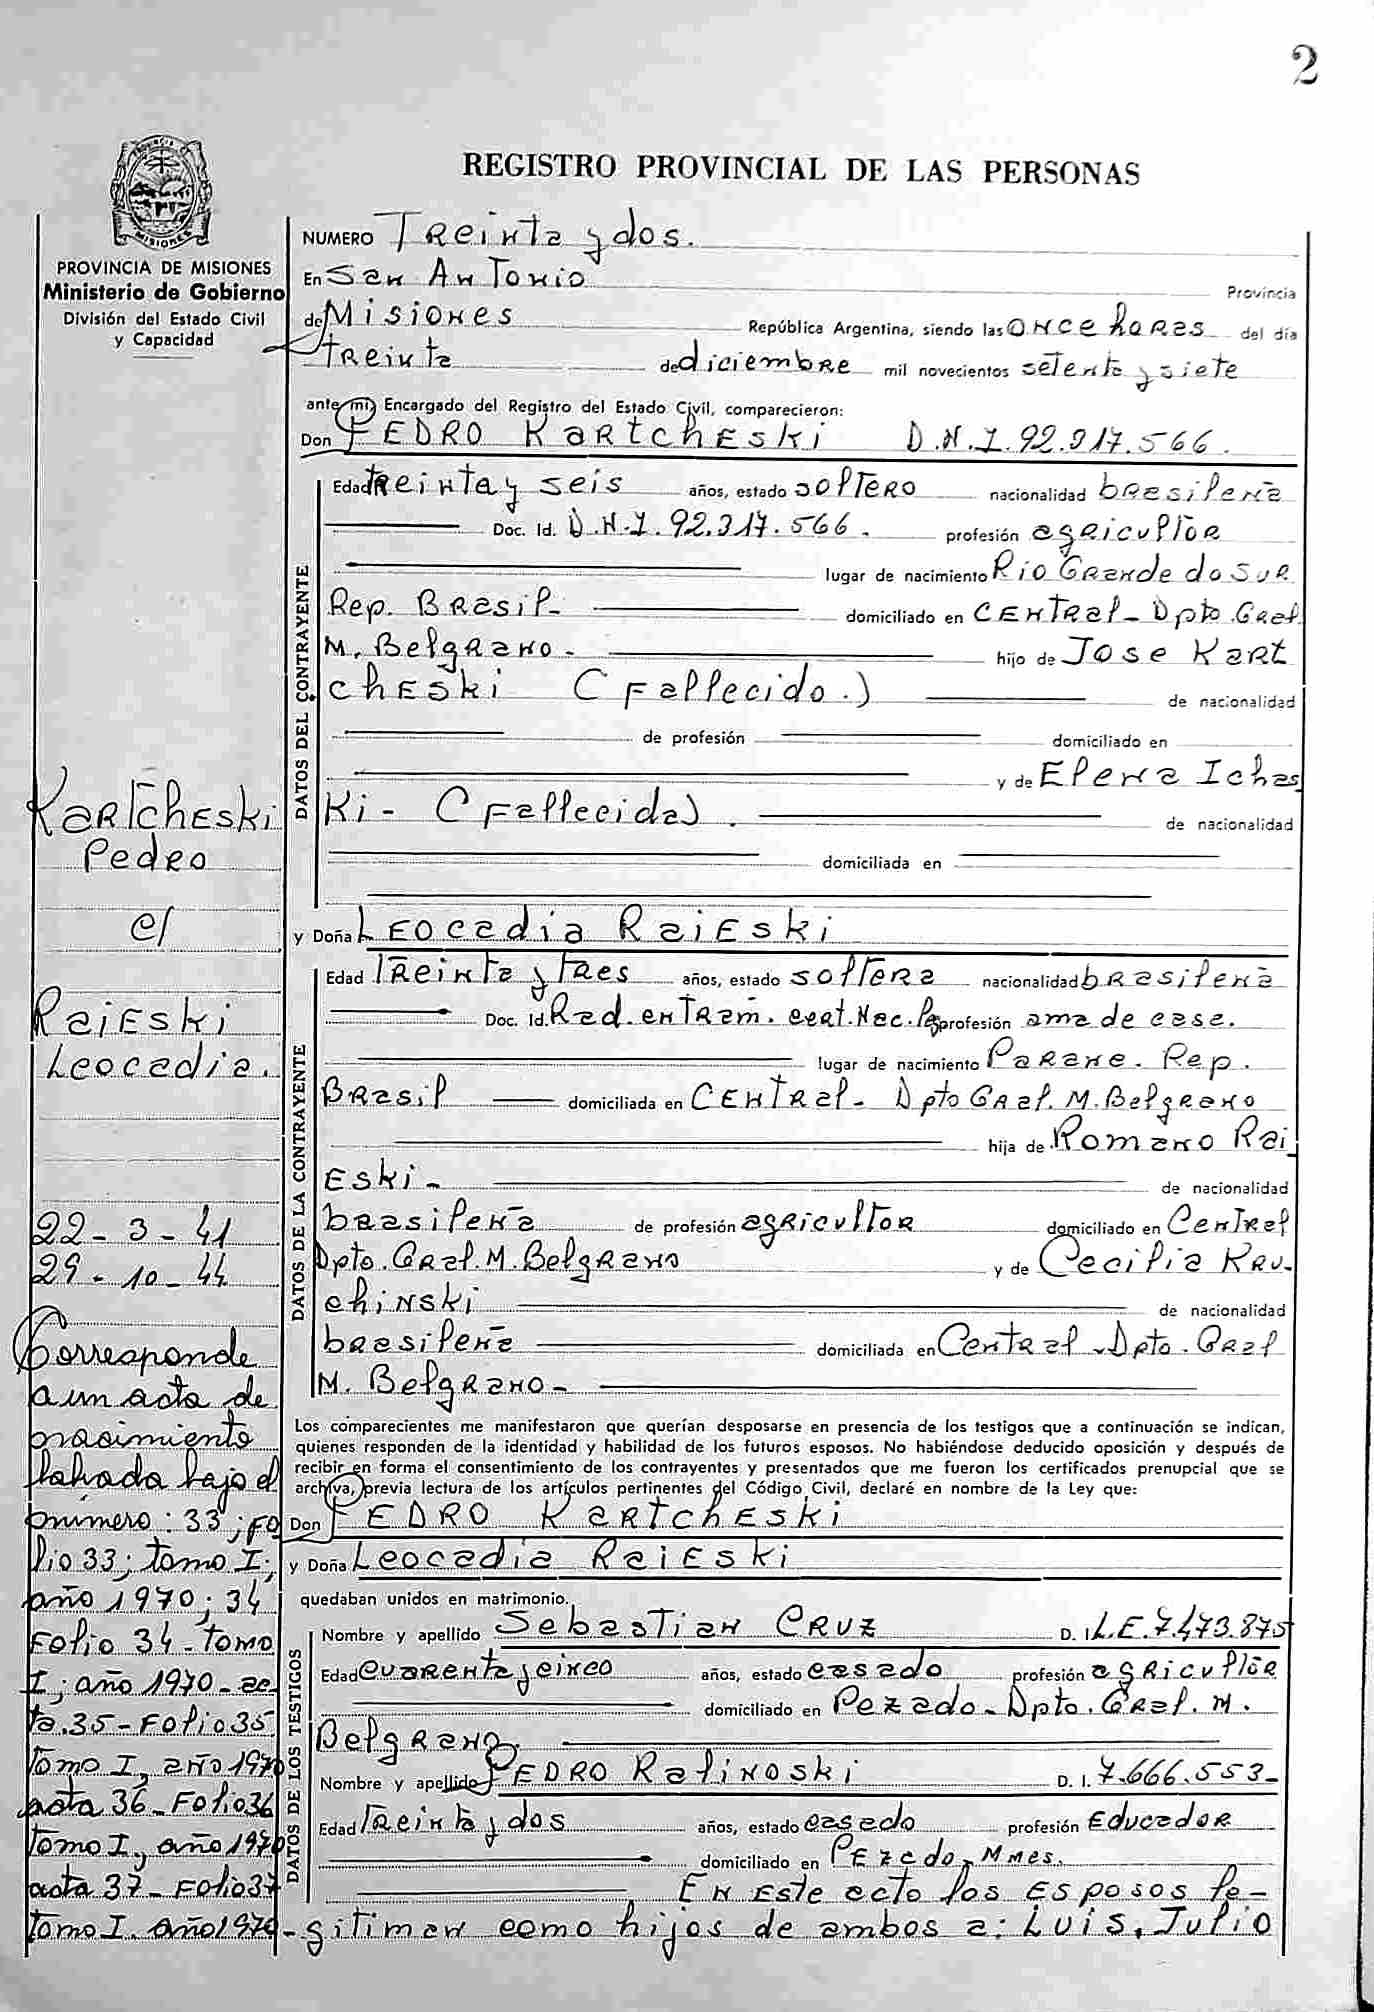 2
REGISTRO PROVINCIAL DE LAS PERSONAS
PROVINCIA DE MISIONES
Ministerio de Gobierno
División del Estado Civil
y Capacidad
NUMERO Treinta y dos.
En San Antonio Provincia
de Misiones República Argentina, siendo las once horas del día
treinta de diciembre mil novecientos setenta y siete
ante mí, Encargado del Registro del Estado Civil, comparecieron:
Don PEDRO KARTCHESKI D.N.I. 92.317.566.
DATOS DEL CONTRAYENTE
Edad treinta y seis años, estado soltero nacionalidad brasileña
Doc. Id. D.N.I. 92.317.566. profesión agricultor
lugar de nacimiento Rio Grande do Sur
Rep. Brasil- domiciliado en Central- Dpto. Gral.
M. Belgrano- hijo de Jose Kart
cheski (Fallecido.) de nacionalidad
de profesión domiciliado en
y de Elena Ichas
ki- (Fallecida). de nacionalidad
domiciliada en
y Doña Leocadia Raieski
DATOS DE LA CONTRAYENTE
Edad treinta y tres años, estado soltera nacionalidad brasileña
Doc. Id. Rad. en tram. cert. Nac. profesión ama de casa.
lugar de nacimiento Parana. Rep.
Brasil domiciliada en Central- Dpto Gral. M. Belgrano
hija de Romano Rai
eski- de nacionalidad
brasileña de profesión agricultor domiciliado en Central
Dpto. Gral. M. Belgrano y de Cecilia Kru-
chinski de nacionalidad
brasileña domiciliada en Central-Dpto. Gral
M. Belgrano-
Los comparecientes me manifestaron que querían desposarse en presencia de los testigos que a continuación se indican,
quienes responden de la identidad y habilidad de los futuros esposos. No habiéndose deducido oposición y después de
recibir en forma el consentimiento de los contrayentes y presentados que me fueron los certificados prenupcial que se
archiva, previa lectura de los artículos pertinentes del Código Civil, declaré en nombre de la Ley que:
Don PEDRO KARTCHESKI
y Doña Leocadia Raieski
quedaban unidos en matrimonio.
DATOS DE LOS TESTIGOS
Nombre y apellido Sebastian Cruz D. I. L.E. 7.473.875
Edad cuarenta y cinco años, estado casado profesión agricultor
domiciliado en Pozado- Dpto. Gral. M.
Belgrano.
Nombre y apellido PEDRO Ralinoski D. I. 7.666.553-
Edad treinta y dos años, estado casado profesión Educador
domiciliado en Pozado- Mnes.
En este acto los esposos le-
gitiman como hijos de ambos a: Luis, Julio
Kartcheski
Pedro
c/
Raieski
Leocadia.
22-3-41
29-10-44
Corresponde
a un acta de
nacimiento
labrada bajo el
número: 33; Fo
lio 33; tomo I;
año 1970; 34
Folio 34-tomo
I; año 1970-ac-
ta.35-Folio 35
tomo I, año 1970
acta 36-Folio 36
tomo I, año 1970
acta 37-Folio 37
tomo I. año 1970-